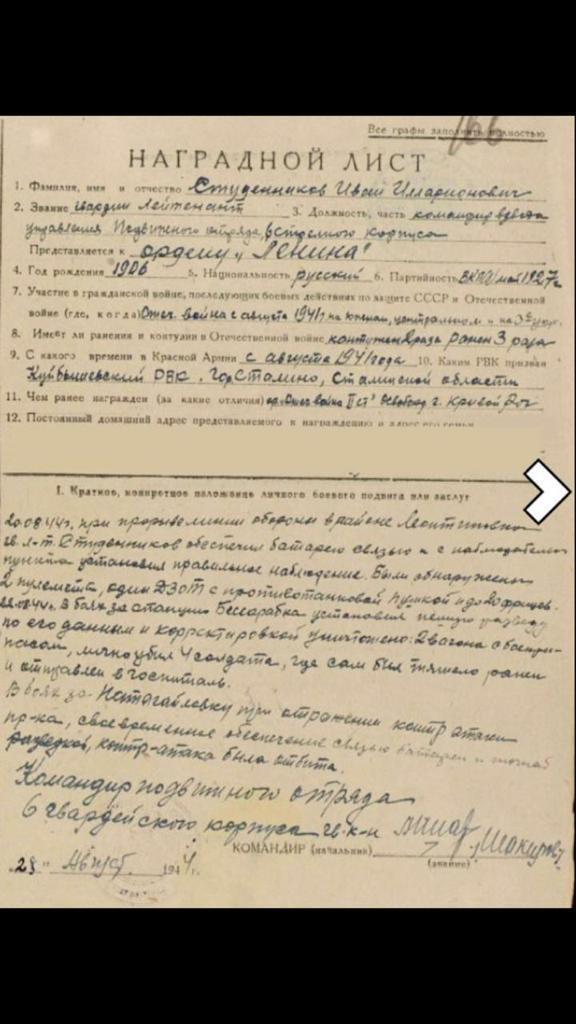 Все графы заполнять полностью
166
НАГРАДНОЙ ЛИСТ
1. Фамилия, имя и отчество Студенников Иван Илларионович
2. Звание гвардии Лейтенант 3. Должность, часть командир взвода
управления Подвижного отряда, 6 стрелкового корпуса
Представляется к ордену „Ленина"
4. Год рождения 1906 5. Национальность русский 6. Партийность ВКП(б) май 1927г
7. Участие в гражданской войне, последующих боевых действиях по защите СССР и Отечественной
войне (где, когда) Отеч. война с августа 1941г на южном, центральном и на 3ем укр.
8. Имеет ли ранения и контузии в Отечественной войне контужен 2 раза ранен 3 раза
9. С какого времени в Красной Армии с августа 1941 года 10. Каким РВК призван
Куйбышевский РВК, гор. Сталино, Сталинской области
11. Чем ранее награжден (за какие отличия) ор. Отеч война II ст. освобод г. Кривой Рог
12. Постоянный домашний адрес представляемого к награждению и адрес его семьи
I. Краткое, конкретное изложение личного боевого подвига или заслуг
20.08.44г. при прорыве линии обороны в районе
гв. л-т Студенников обеспечил батарею связью и с наблюдательн
пункта установил правильное наблюдение. Были обнаружены
2 пулемета, один ДЗОТ с противотанковой пушкой и до 20 фрицев.
22.08.44г. В боях за станцию Бессарабка установил пешую разведку
по его данным и корректировкой уничтожено: 2 вагона с боепри-
пасом, лично убил 4 солдата, где сам был тяжело ранен
и отправлен в госпиталь.
В боях за при отражении контр атаки
пр-ка, своевременное обеспечение связью батареи и
разведкой, контр-атака была отбита.
Командир подвижного отряда
6 гвардейского корпуса гв. к-н Шакиров
КОМАНДИР (начальник)
(звание)
„28" Август 1944г.